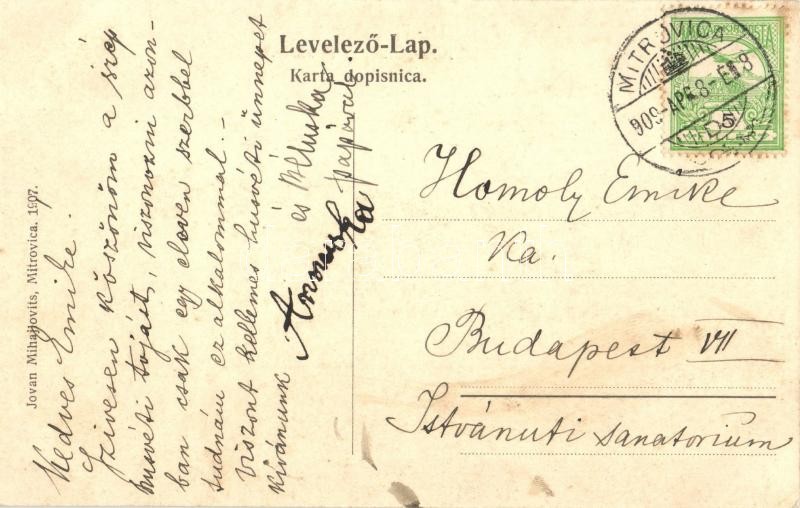 Levelező-Lap.
Karta dopisnica.
MITROVICA
909 APR 8
5
Homoly Emike
Ka.
Budapest VII
Istvánuti sanatorium
Kedves Emike.
Szivesen köszönöm a szép
husvéti tojást, viszonozni azon-
ban csak egy eleven szerbbel
tudnám ez alkalommal. -
Viszont kellemes husvéti ünnepet
kivánunk
Annuska
és papával
Jovan Mihajlovits, Mitrovica. 1907.